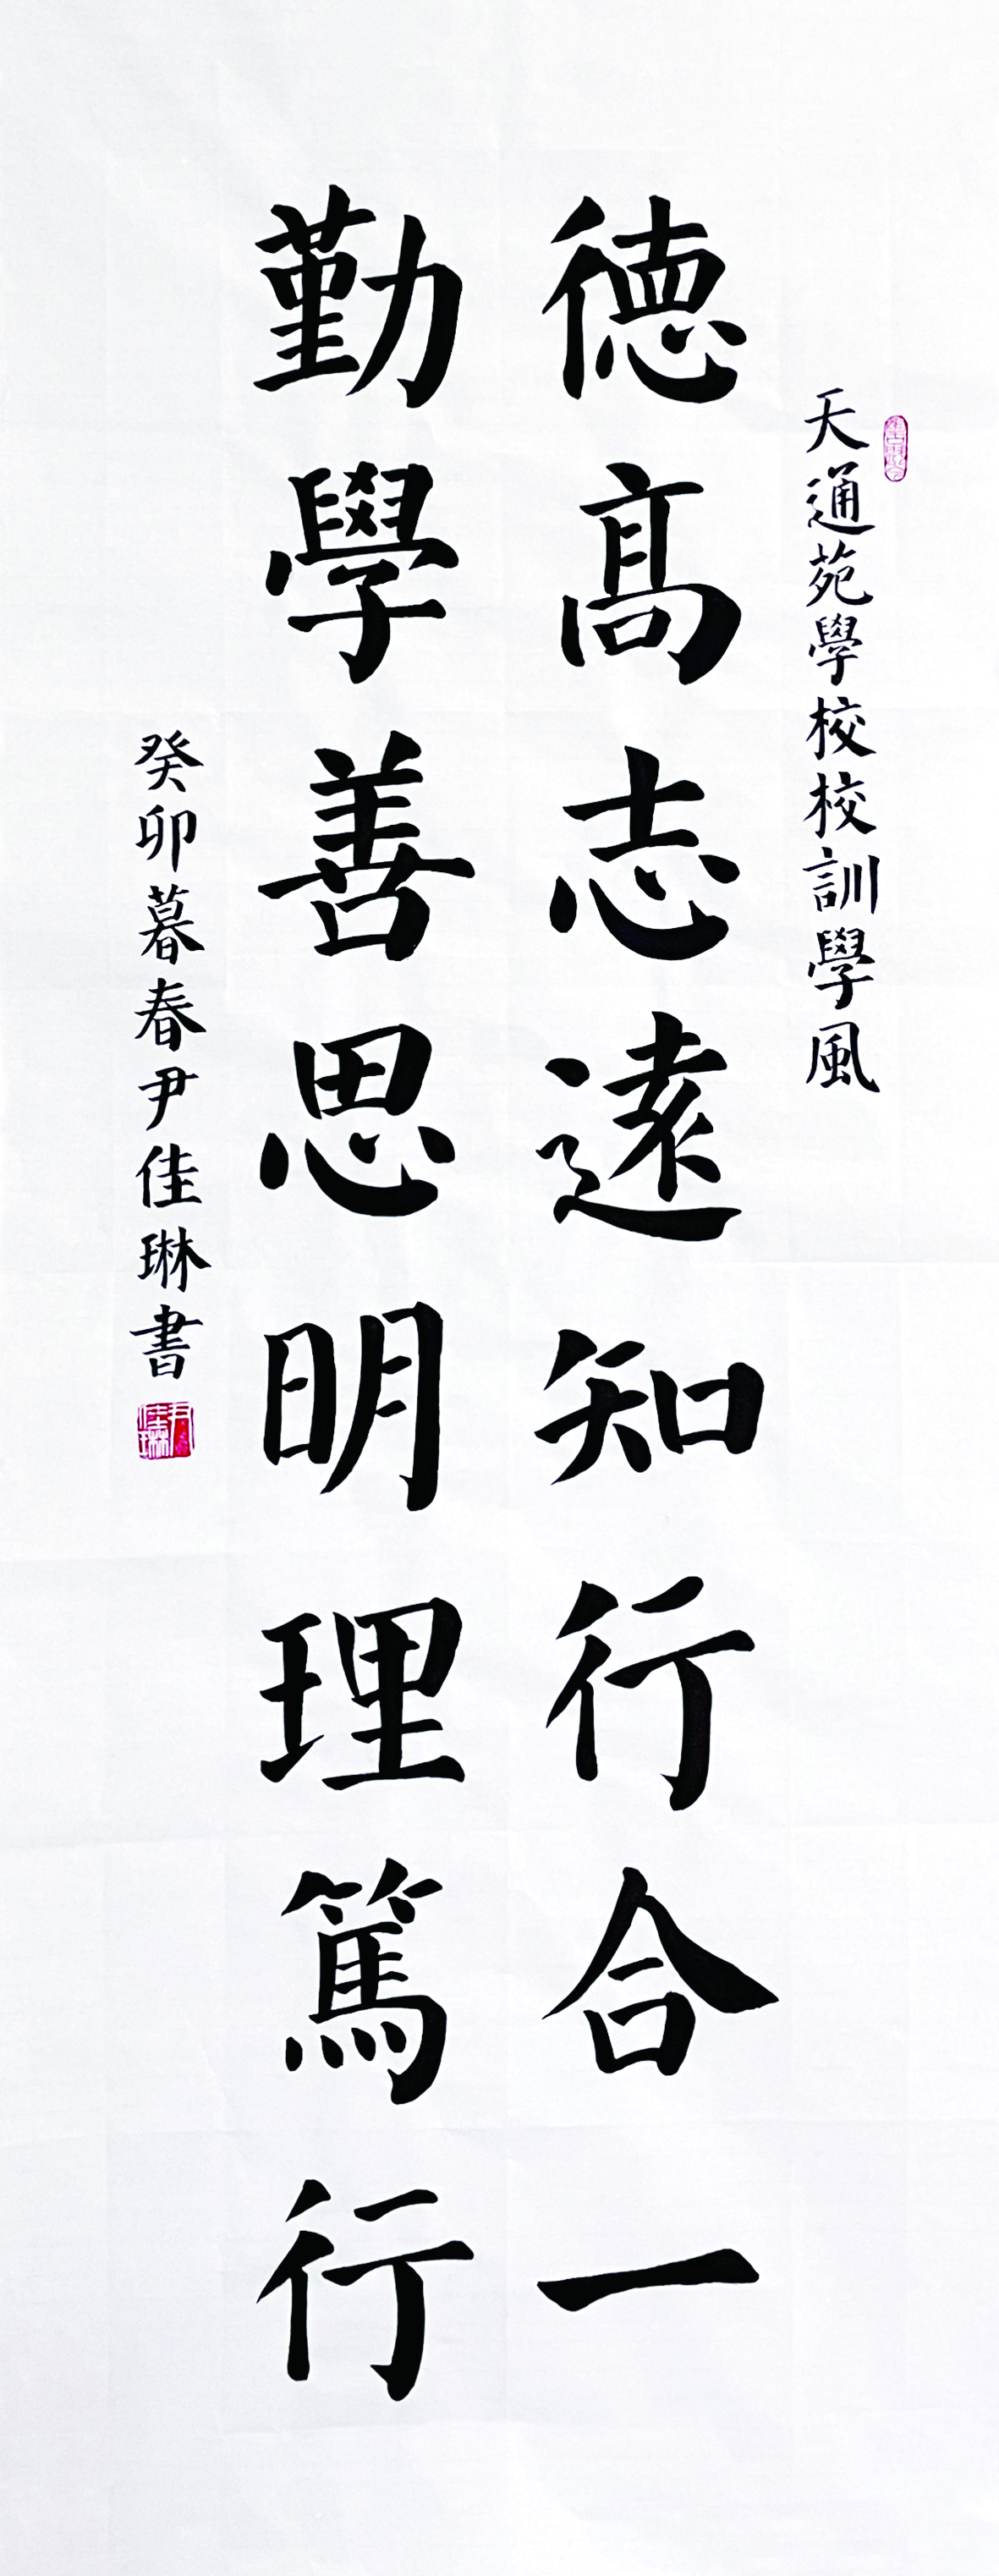 天通苑學校校訓學風
徳髙志遠知行合一
勤學善思明理篤行
癸卯暮春尹佳琳書
尹佳琳